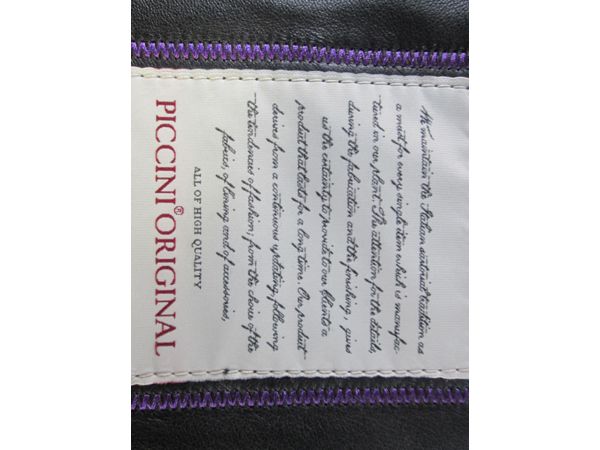 We maintain the Italian sartorial tradition as
a must for every single item which is manufac-
tured in our plant. The attention for the details,
during the fabrication and the finishing, gives
us the certainty to provide to our Clients a
product that lasts for a long time. Our product
derives from a continuous updating, following
the tendencies of fashion, from the choice of the
fabrics, of lining and of accessories,
ALL OF HIGH QUALITY
PICCINI® ORIGINAL